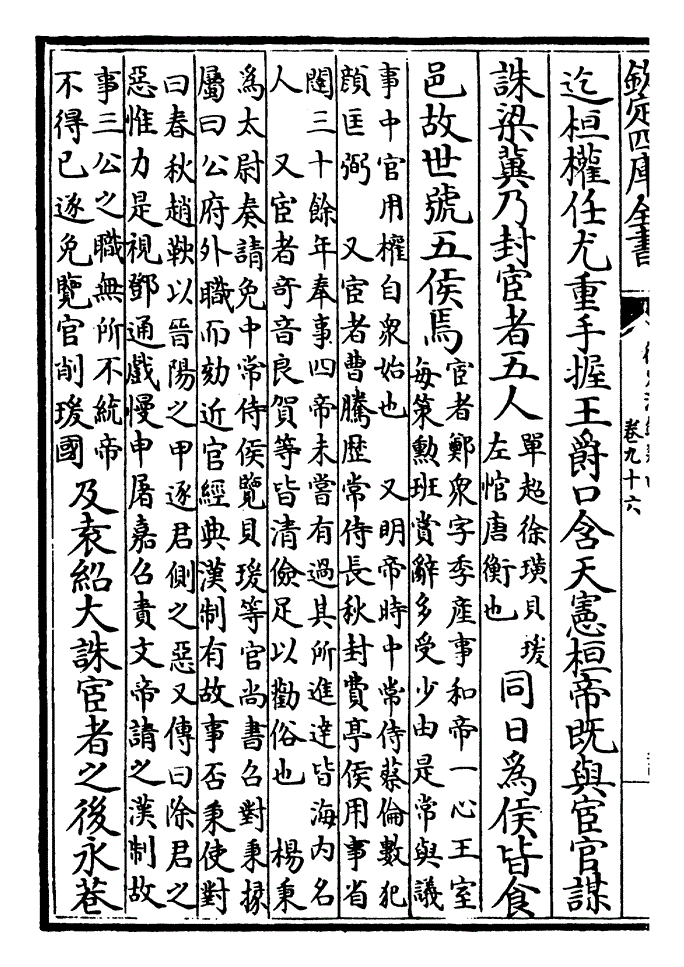 欽定四庫全書
卷九十六
迄桓權任尤重手握王爵口含天憲桓帝既與宦官謀
誅梁冀乃封宦者五人
單超徐璜貝瑗
左悺唐衡也
同日為侯皆食
邑故世號五侯焉
宦者鄭衆字季產事和帝一心王室
每策勲班賞辭多受少由是常與議
事中官用權自衆始也 又明帝時中常侍蔡倫數犯
顔匡弼 又宦者曹騰歴常侍長秋封費亭侯用事省
闥三十餘年奉事四帝未嘗有過其所進達皆海内名
人 又宦者奇音良賀等皆清儉足以勸俗也 楊秉
為太尉奏請免中常侍侯覽貝瑗等官尚書召對秉掾
屬曰公府外職而劾近官經典漢制有故事否秉使對
曰春秋趙鞅以晉陽之甲逐君側之惡又傳曰除君之
惡惟力是視鄧通戲慢申屠嘉召責文帝請之漢制故
事三公之職無所不統帝
不得已遂免覽官削瑗國
及袁紹大誅宦者之後永巷